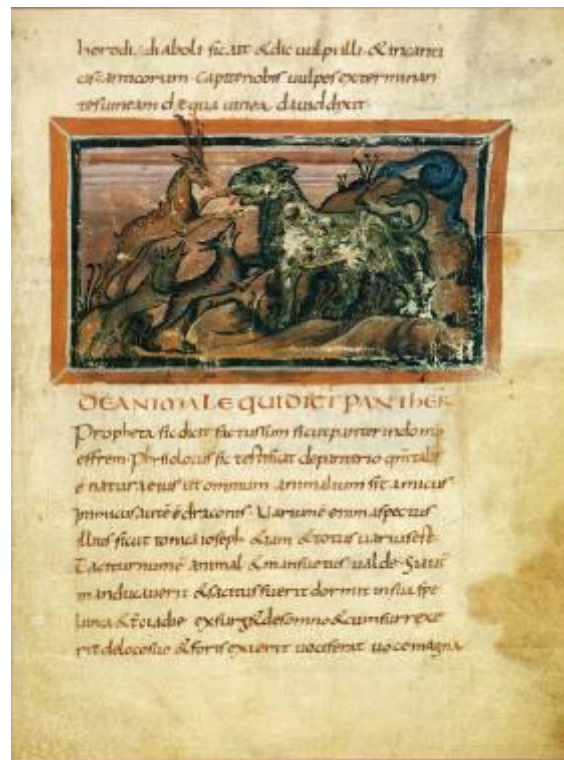 herodi. diaboli sicut & dic uulpi illi. & in canti
cis canticorum. capite nobis uulpes exterminan
tes uineam de qua uinea dauid dixit.
DE ANIMALE QUI DICIT PANTHER
Propheta sic dicit factus sum sicut panter in domo
effrem. Phisiolocus sic testificat de panterio qm tale
ē natura eius ut omnium animalium sit amicus
inimicus autē ē draconis. Uarium ē enim aspectus
illius sicut tonica ioseph
Taciturnum ē animal & mansuetus ualde. Si aut
manducauerit & saciatus fuerit dormit in sua spe
lunca & tercia die exsurg& de somno & cum surrexe
rit de loco suo & foris exierit uociferat uoce magna